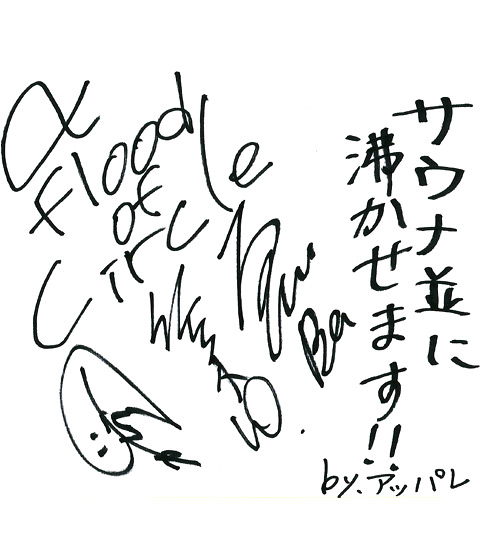 サウナ並に
沸かせます!!
by.アッパレ
a
flood
of
circle